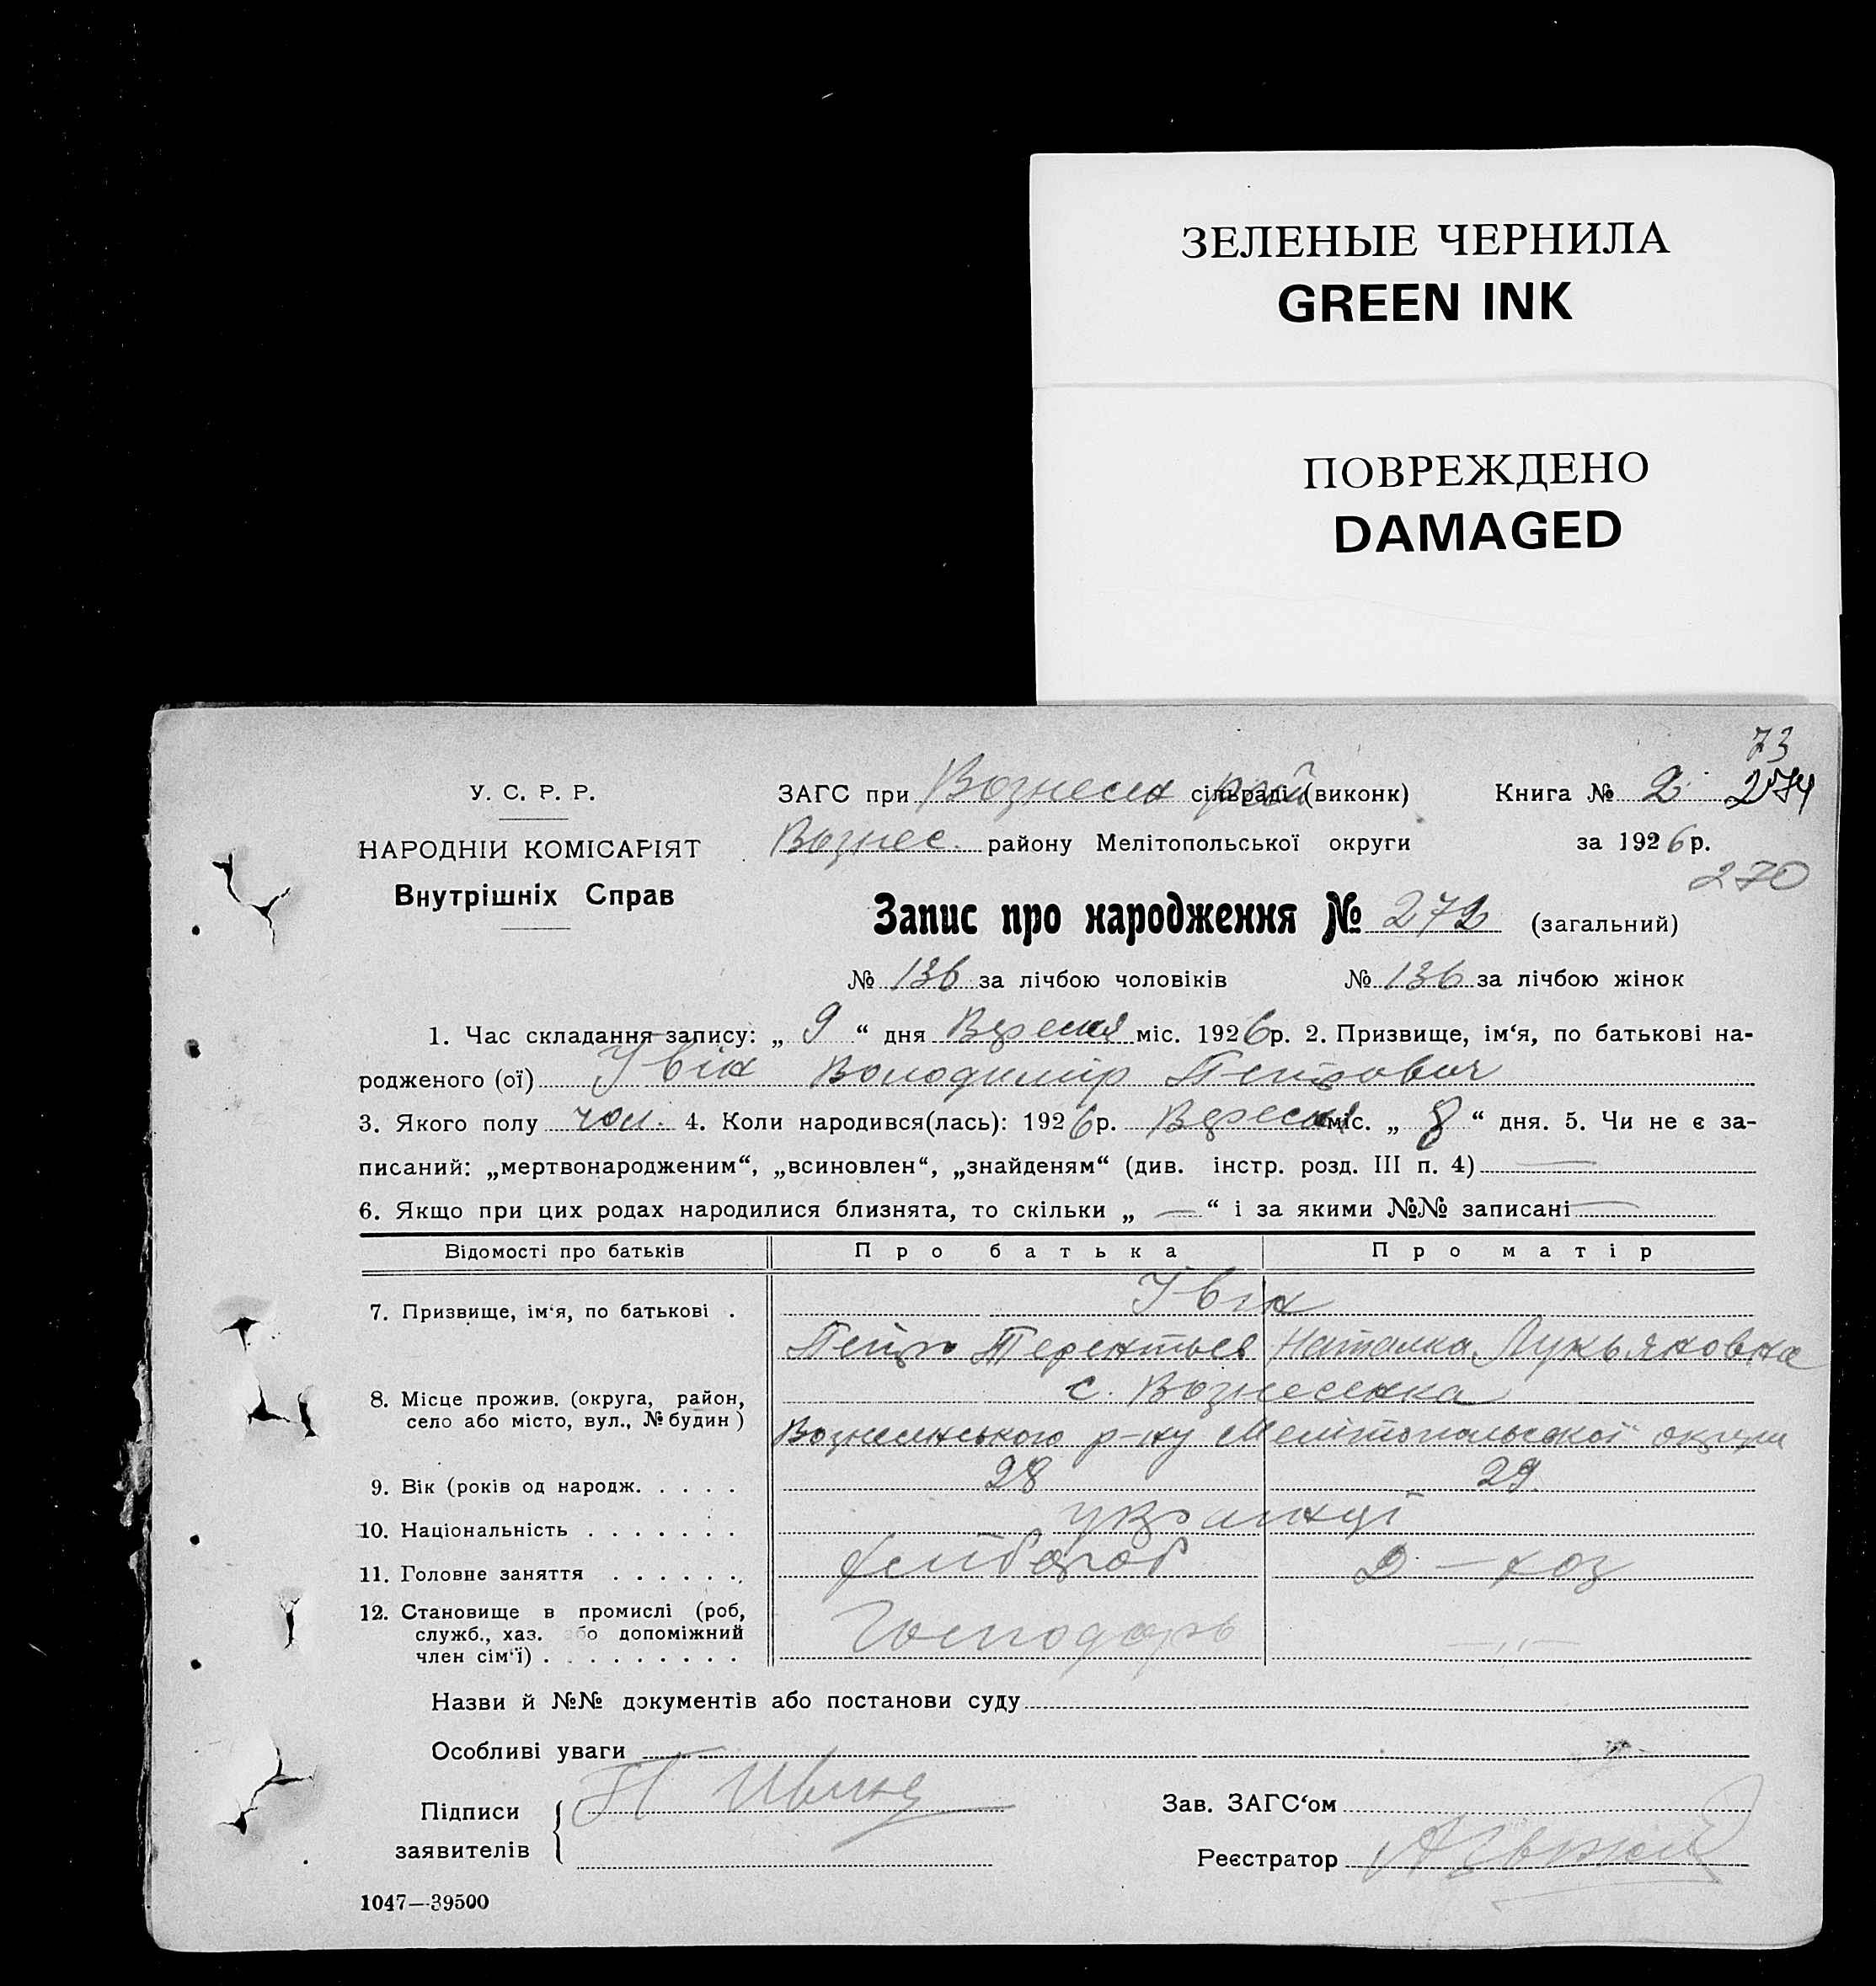 ЗЕЛЕНЫЕ ЧЕРНИЛА
GREEN INK
ПОВРЕЖДЕНО
DAMAGED
73
У. С. Р. Р.
ЗАГС при Вознесен рай сільраді (виконк) Книга № 2 274
НАРОДНІЙ КОМІСАРІЯТ
Вознес. району Мелітопольської округи за 1926 р.
Внутрішніх Справ
270
Запис про народження № 272 (загальний)
№ 136 за лічбою чоловіків № 136 за лічбою жінок
1. Час складання запису: „ 9 “ дня Вересня міс. 1926 р. 2. Призвище, ім‘я, по батькові на-
родженого (ої) Івін Володимір Петрович
3. Якого полу чол. 4. Коли народився(лась): 1926 р. Вересня міс. „ 8 “ дня. 5. Чи не є за-
писаний: „мертвонародженим“, „всиновлен“, „знайденям“ (див. інстр. розд. III п. 4) —
6. Якщо при цих родах народилися близнята, то скільки „ — “ і за якими №№ записані —
Відомості про батьків Про батька Про матір
7. Призвище, ім‘я, по батькові . Івін
Петро Терентьев Наталка Лукьяновна
8. Місце прожив. (округа, район, село або місто, вул., № будин) с. Вознесенка
Вознесенського р-ну Мелітопольської округи
9. Вік (років од народж. . . . . 28 29
10. Національність . . . . . . . українці
11. Головне заняття . . . . . . хлібороб Д — хоз
12. Становище в промислі (роб, служб., хаз. або допоміжний член сім‘ї) . . . . . . . . . Господарь —„—
Назви й №№ документів або постанови суду
Особливі уваги
Підписи заявителів П Ивин
Зав. ЗАГС‘ом
Реєстратор
1047—39500